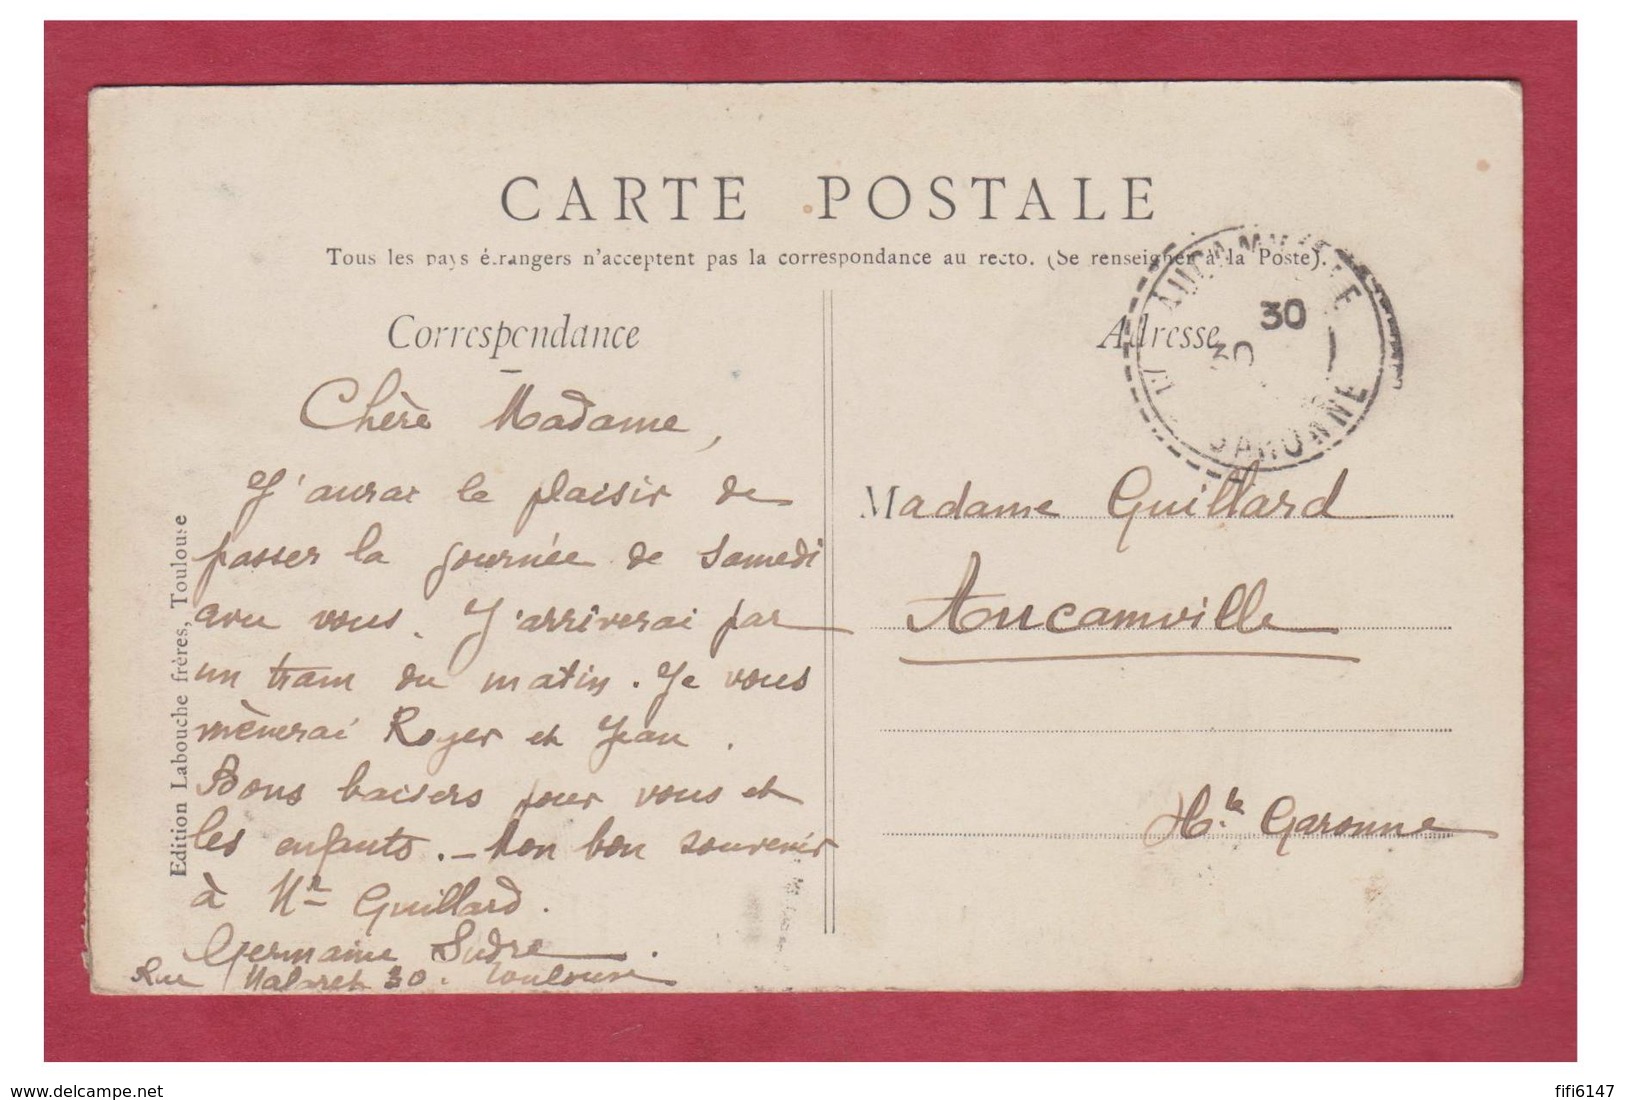 CARTE POSTALE
Tous les pays étrangers n'acceptent pas la correspondance au recto. (Se renseigner à la Poste).
Correspondance
Chère Madame,
J'aurai le plaisir de
passer la journée de samedi
avec vous. J'arriverai par
un tram du matin. Je vous
mènerai Roger et Jean.
Bons baisers pour vous et
les enfants. - Mon bon souvenir
à Mr Guillard.
Germaine Sudre.
Rue Malaret 30. Toulouse
Edition Labouche frères, Toulouse
Adresse
AUCAMVILLE
30
30
GARONNE
Madame Guillard
Aucamville
Hte Garonne
delcampe.net
fifi6147